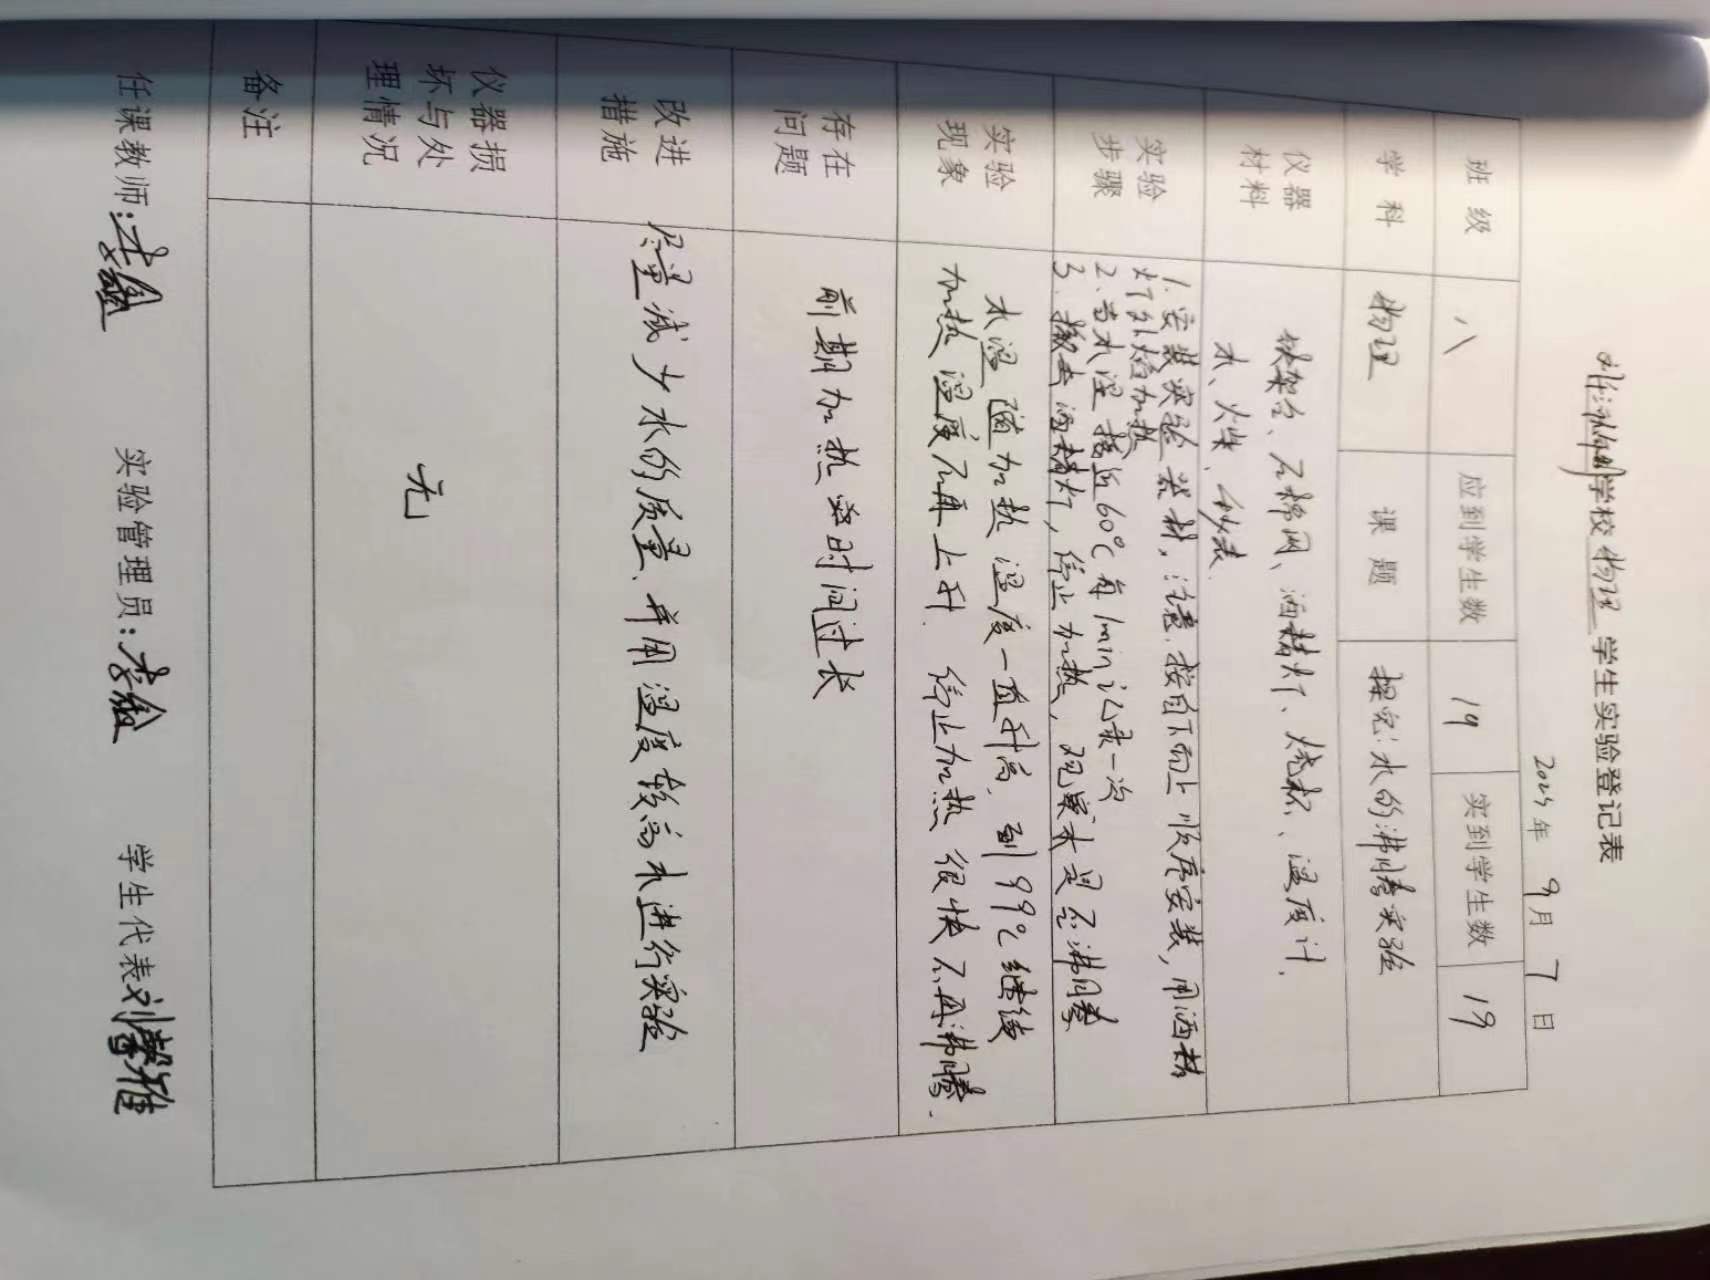 学校物理学生实验登记表
年 9月 7日
班级 八 应到学生数 19 实到学生数 19
学科 物理 课题 探究水的沸腾实验
仪器材料 铁架台、石棉网、酒精灯、烧杯、温度计、
水、火柴、秒表.
实验步骤 1.安装实验器材,注意.按自下而上顺序安装,用酒精
灯外焰加热
2.当水温接近60℃每1min记录一次
3.撤去酒精灯,停止加热,观察水是否沸腾
实验现象 水温随加热温度一直升高.到99℃继续
加热温度不再上升.停止加热很快不再沸腾.
存在问题 前期加热 时间过长
改进措施 尽量减少水的质量、并用温度较高水进行实验
仪器损坏与处理情况 无
备注
任课教师:李 实验管理员:李 学生代表刘馨雅